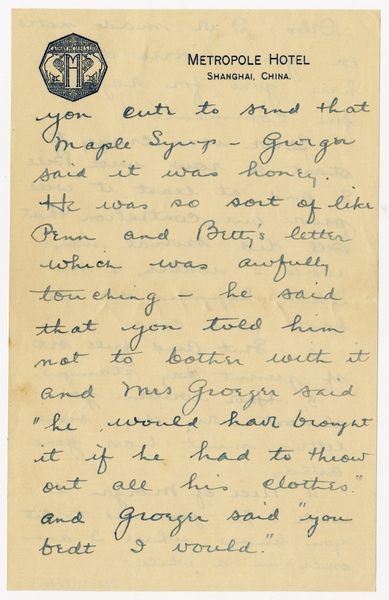 METROPOLE HOTEL
SHANGHAI, CHINA.
you cute to send that
Maple Syrup - Groeger
said it was honey.
He was so sort of like
Penn and Betty's letter
which was awfully
touching - he said
that you told him
not to bother with it
and Mrs Groeger said
"he would have brought
it if he had to throw
out all his clothes."
and Groeger said "you
bedt I would."